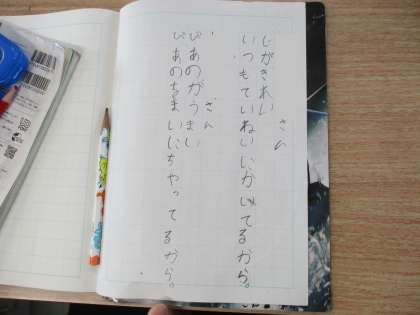 さん
じがきれい
いつもていねいにかいてるから。
さん
ぴあのがうまい
ぴあのまいにちやってるから。